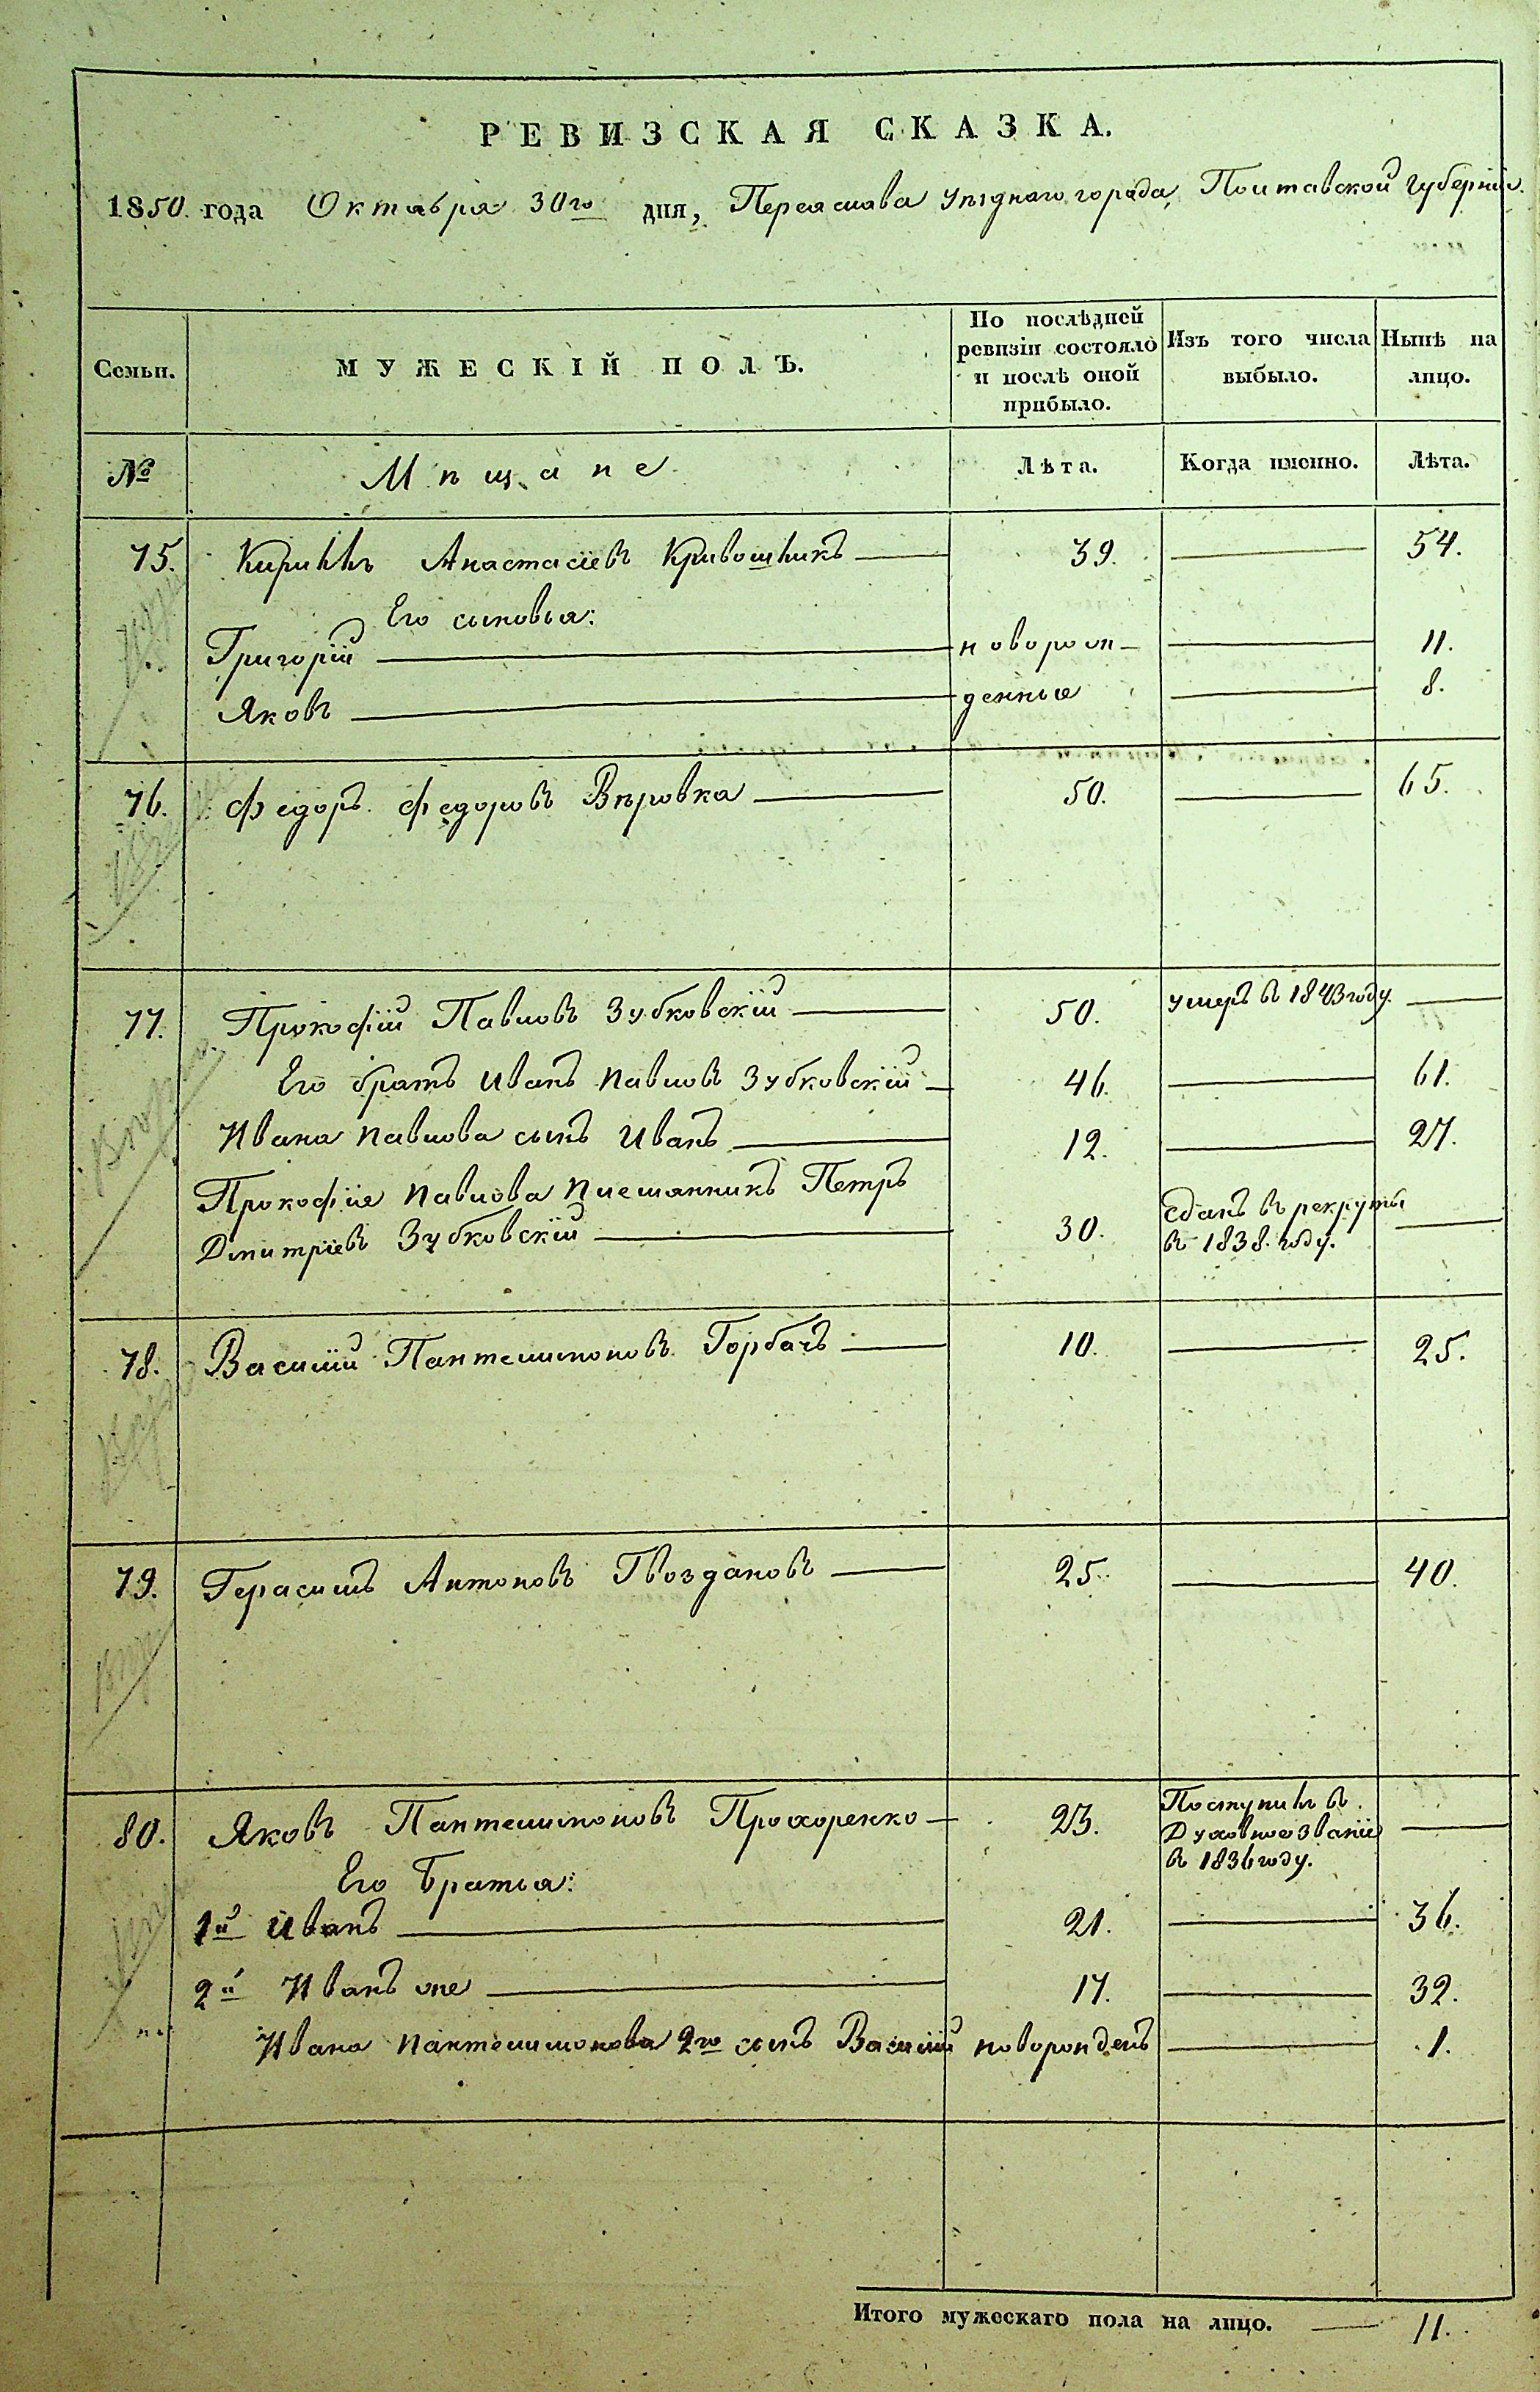 РЕВИЗСКАЯ СКАЗКА.
1850 года Октября 30го дня, Переяслава уѣзднаго города, Полтавской губерніи.
Семьи. МУЖЕСКІЙ ПОЛЪ. По послѣдней ревизіи состояло и послѣ оной прибыло. Изъ того числа выбыло. Нынѣ на лицо.
№ Мѣщане Лѣта. Когда именно. Лѣта.
75. Кириллъ Анастасіевъ Кривошликъ 39. 54.
Его сыновья:
Григорій новорож- 11.
Яковъ денные 8.
76. Федоръ Федоровъ Вѣровка 50. 65.
77. Прокофій Павловъ Зубковскій 50. умеръ въ 1843 году.
Его братъ Иванъ Павловъ Зубковскій 46. 61.
Ивана Павлова сынъ Иванъ 12. 27.
Прокофія Павлова племянникъ Петръ
Дмитріевъ Зубковскій 30. Сданъ въ рекруты въ 1838. году.
78. Василій Пантелимоновъ Горбачъ 10. 25.
79. Герасимъ Антоновъ Гвоздановъ 25. 40.
80. Яковъ Пантелимоновъ Прохоренко 23. Поступилъ въ Духовное званіе въ 1836 году.
Его братья:
1й Иванъ 21. 36.
2й Иванъ же 17. 32.
Ивана Пантелимонова 2го сынъ Василій новорожденъ 1.
Итого мужескаго пола на лицо. 11.